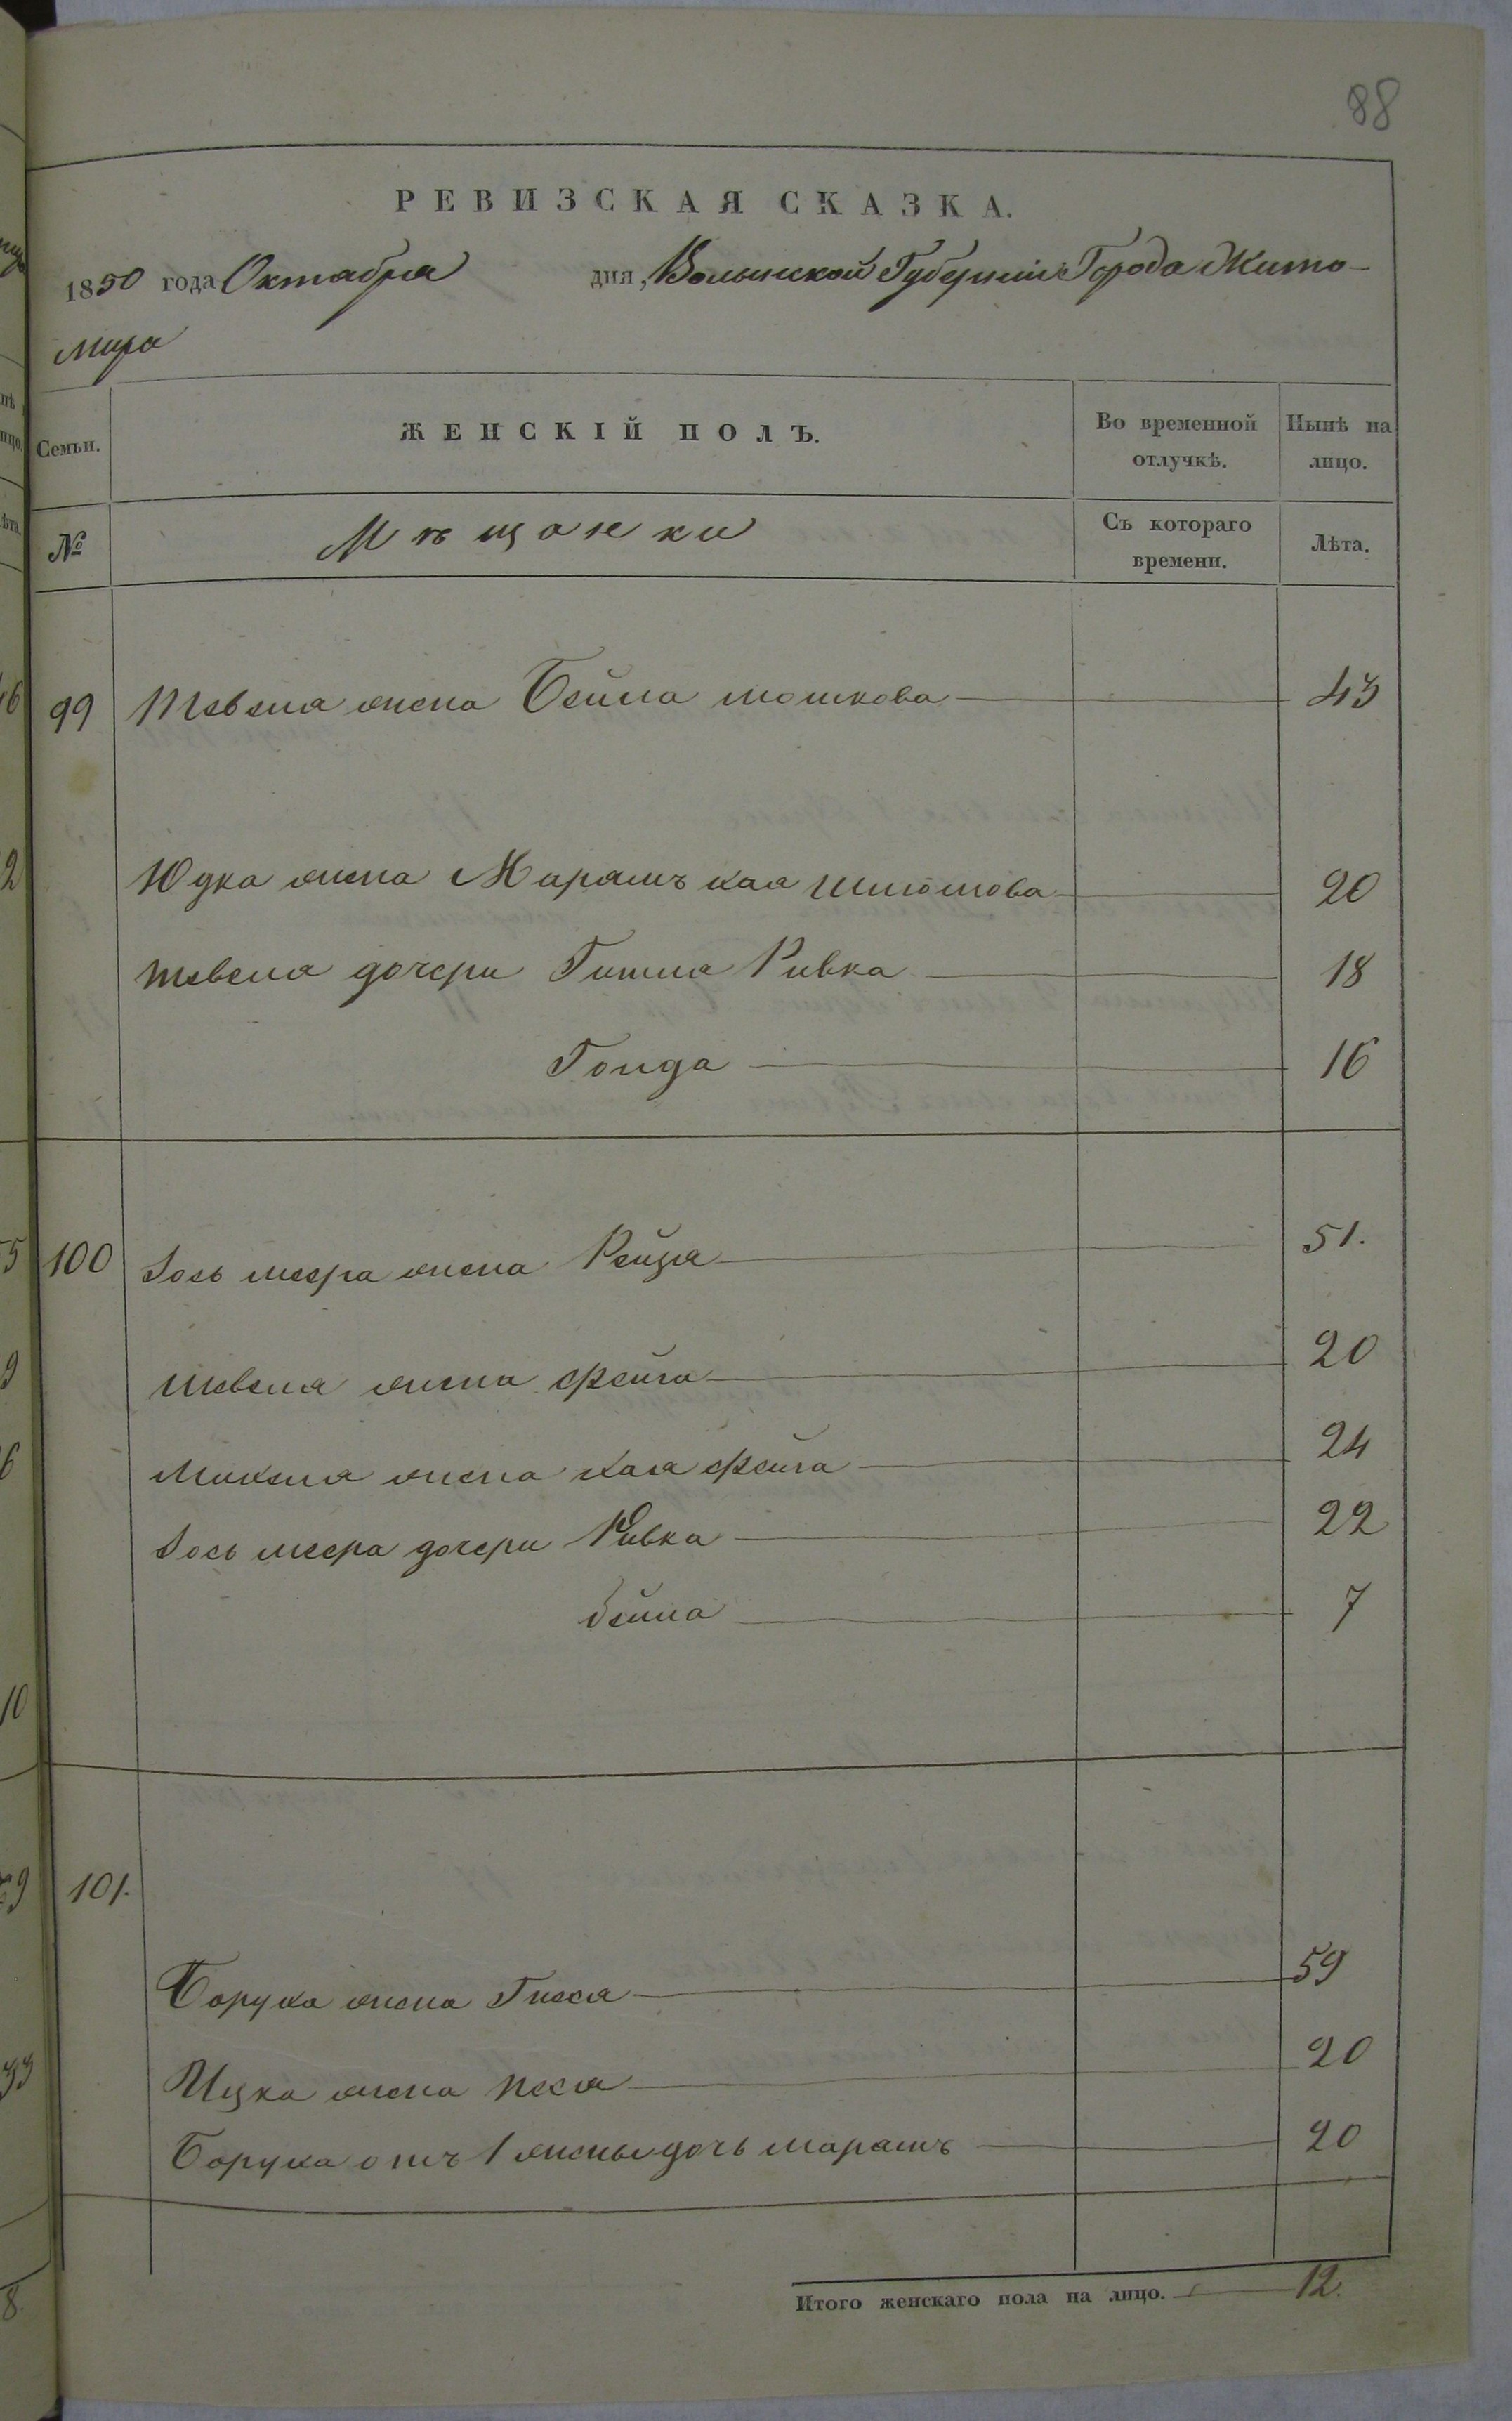 88
РЕВИЗСКАЯ СКАЗКА.
1850 года Октября дня, Волынской Губернии Города Жито-
мира
Семьи. ЖЕНСКІЙ ПОЛЪ. Во временной отлучкѣ. Нынѣ на лицо.
№ Мѣщанки Съ котораго времени. Лѣта.
99 Тевеля жена Бейла мошкова 43
Юдка жена Марьямъ хая шлiомова 20
тевеля дочери Гитля Ривка 18
Голда 16
100 Iось меера жена Рейзя 51.
шевеля жена фейга 20
Михеля жена хая фейга 24
Iось меера дочери Ривка 22
бейла 7
101.
Боруха жена Гнеся 59
Ицка жена песя 20
Боруха отъ 1 жены дочь марьямъ 20
Итого женскаго пола на лицо. 12.